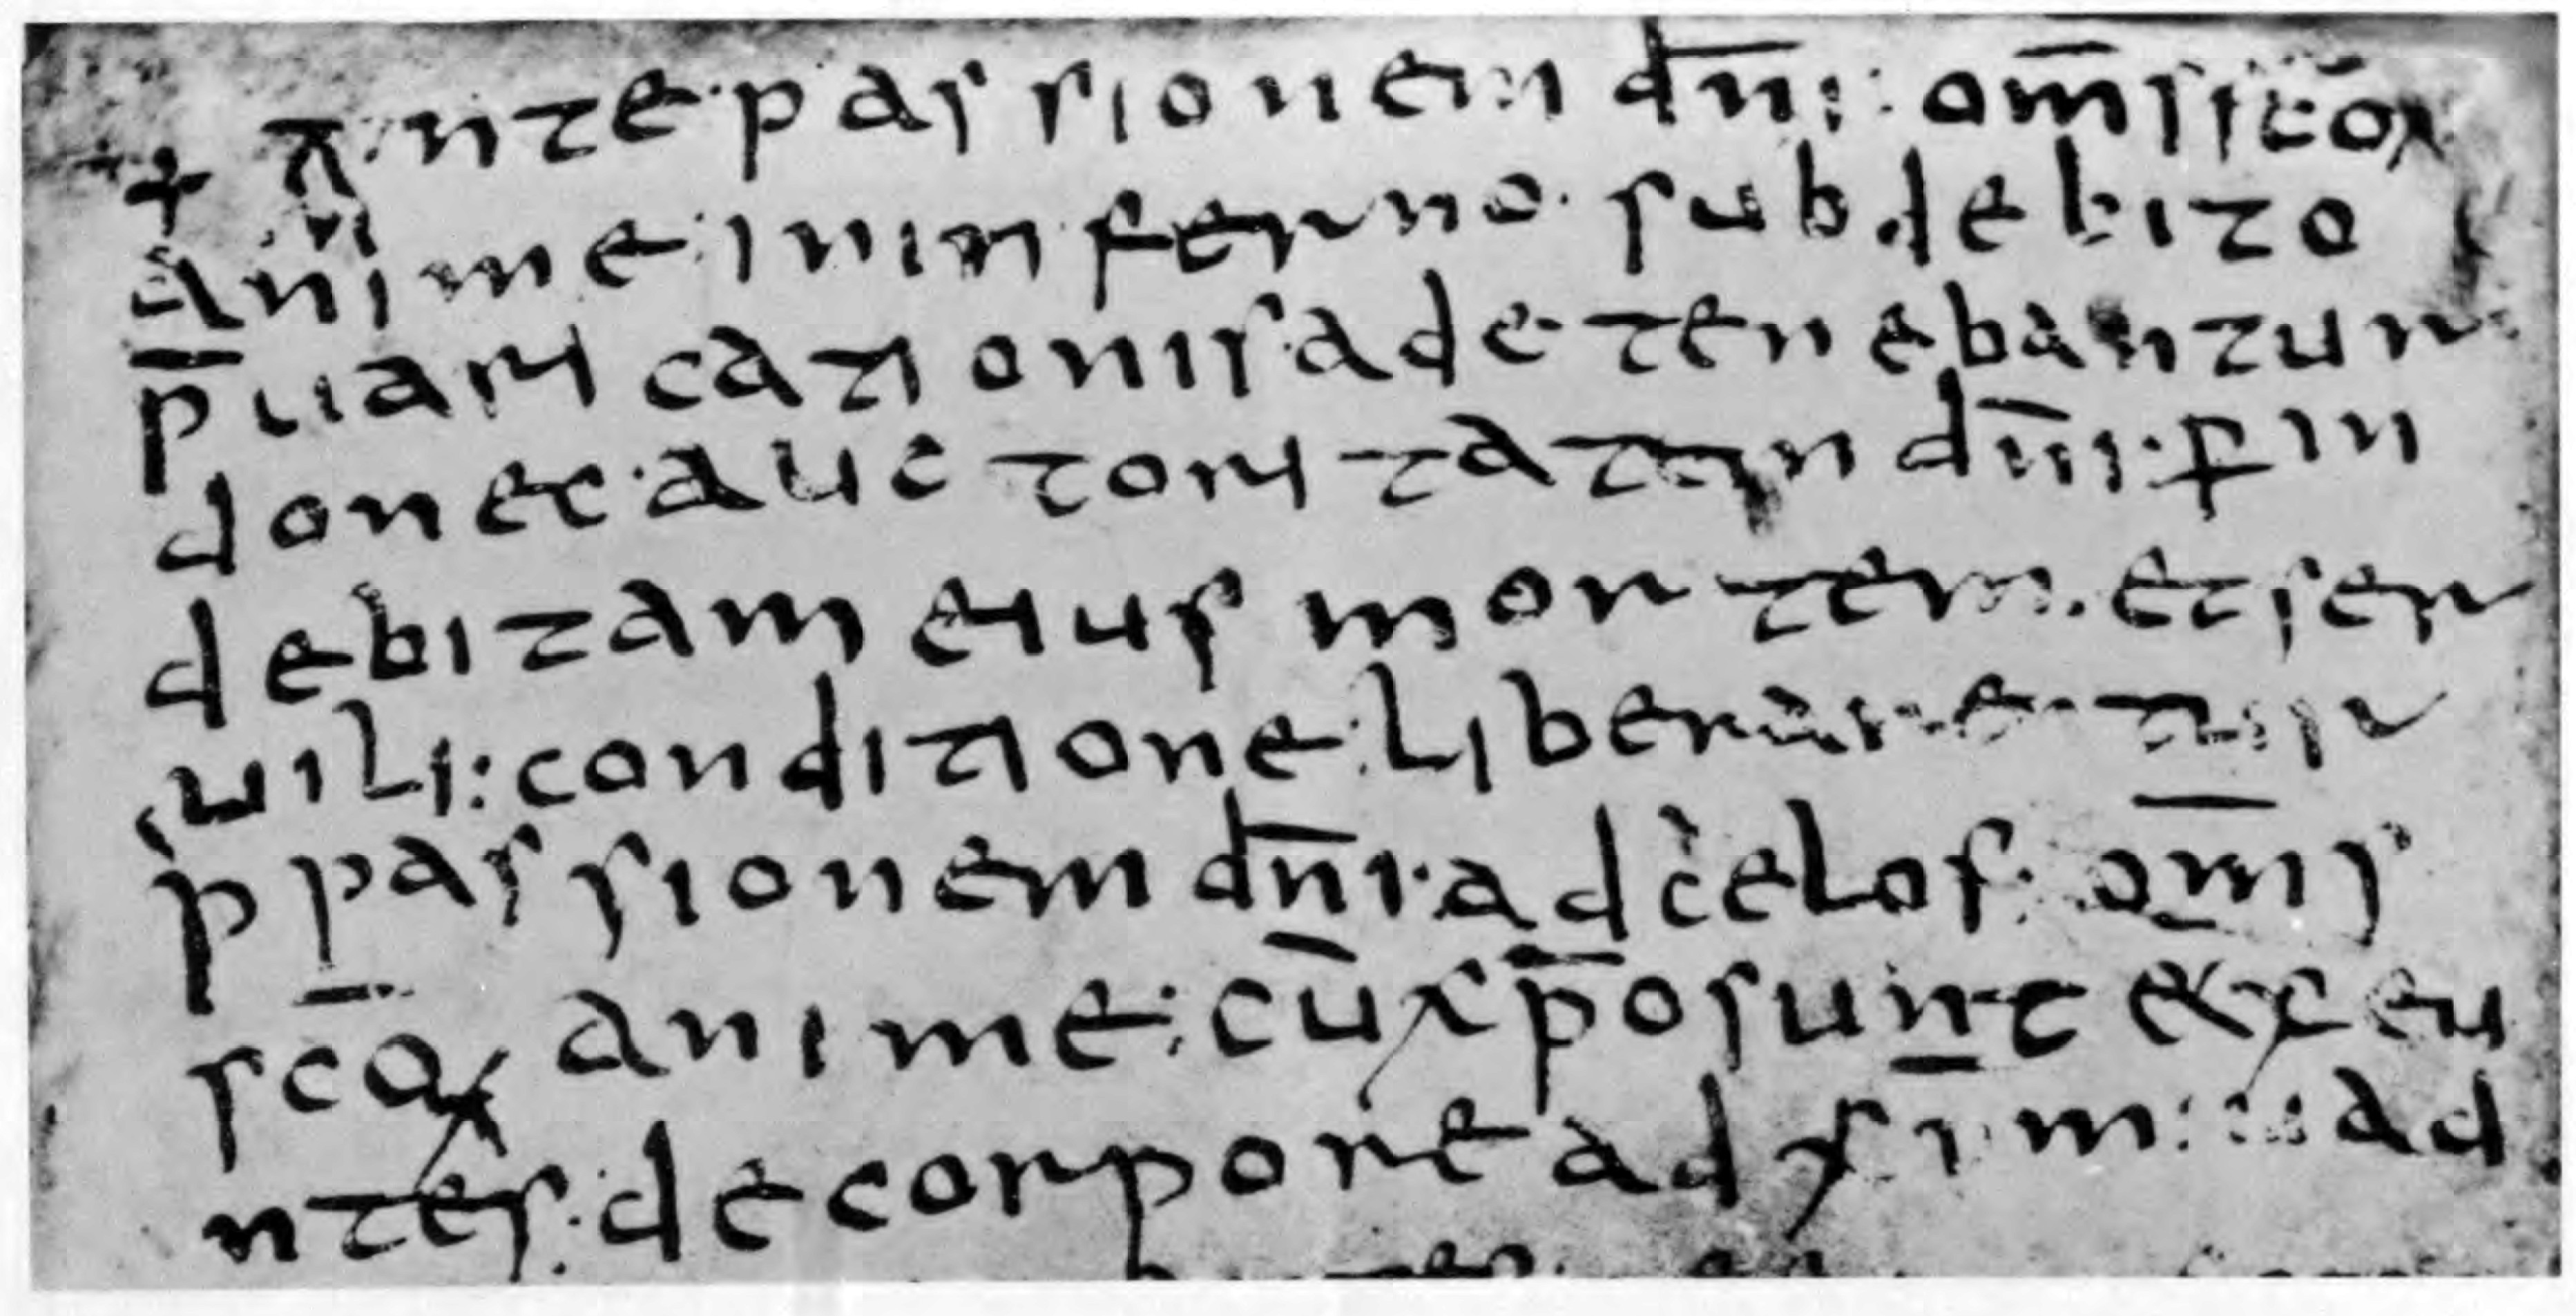 + Ante passionem dn̄i: om̄s sc̄oꝝ
anime: in inferno. sub debito
p̄uaricationis ade tenebantur
donec auctoritatem dn̄i: ꝑ in
debitam eius mortem. et ser
uili: conditione liberare
p p̱assionem dn̄i. ad celos: om̄s
sc̄oꝝ anime: cū xp̄o sunt exeu
ntes: de corpore ad xp̄m: uad